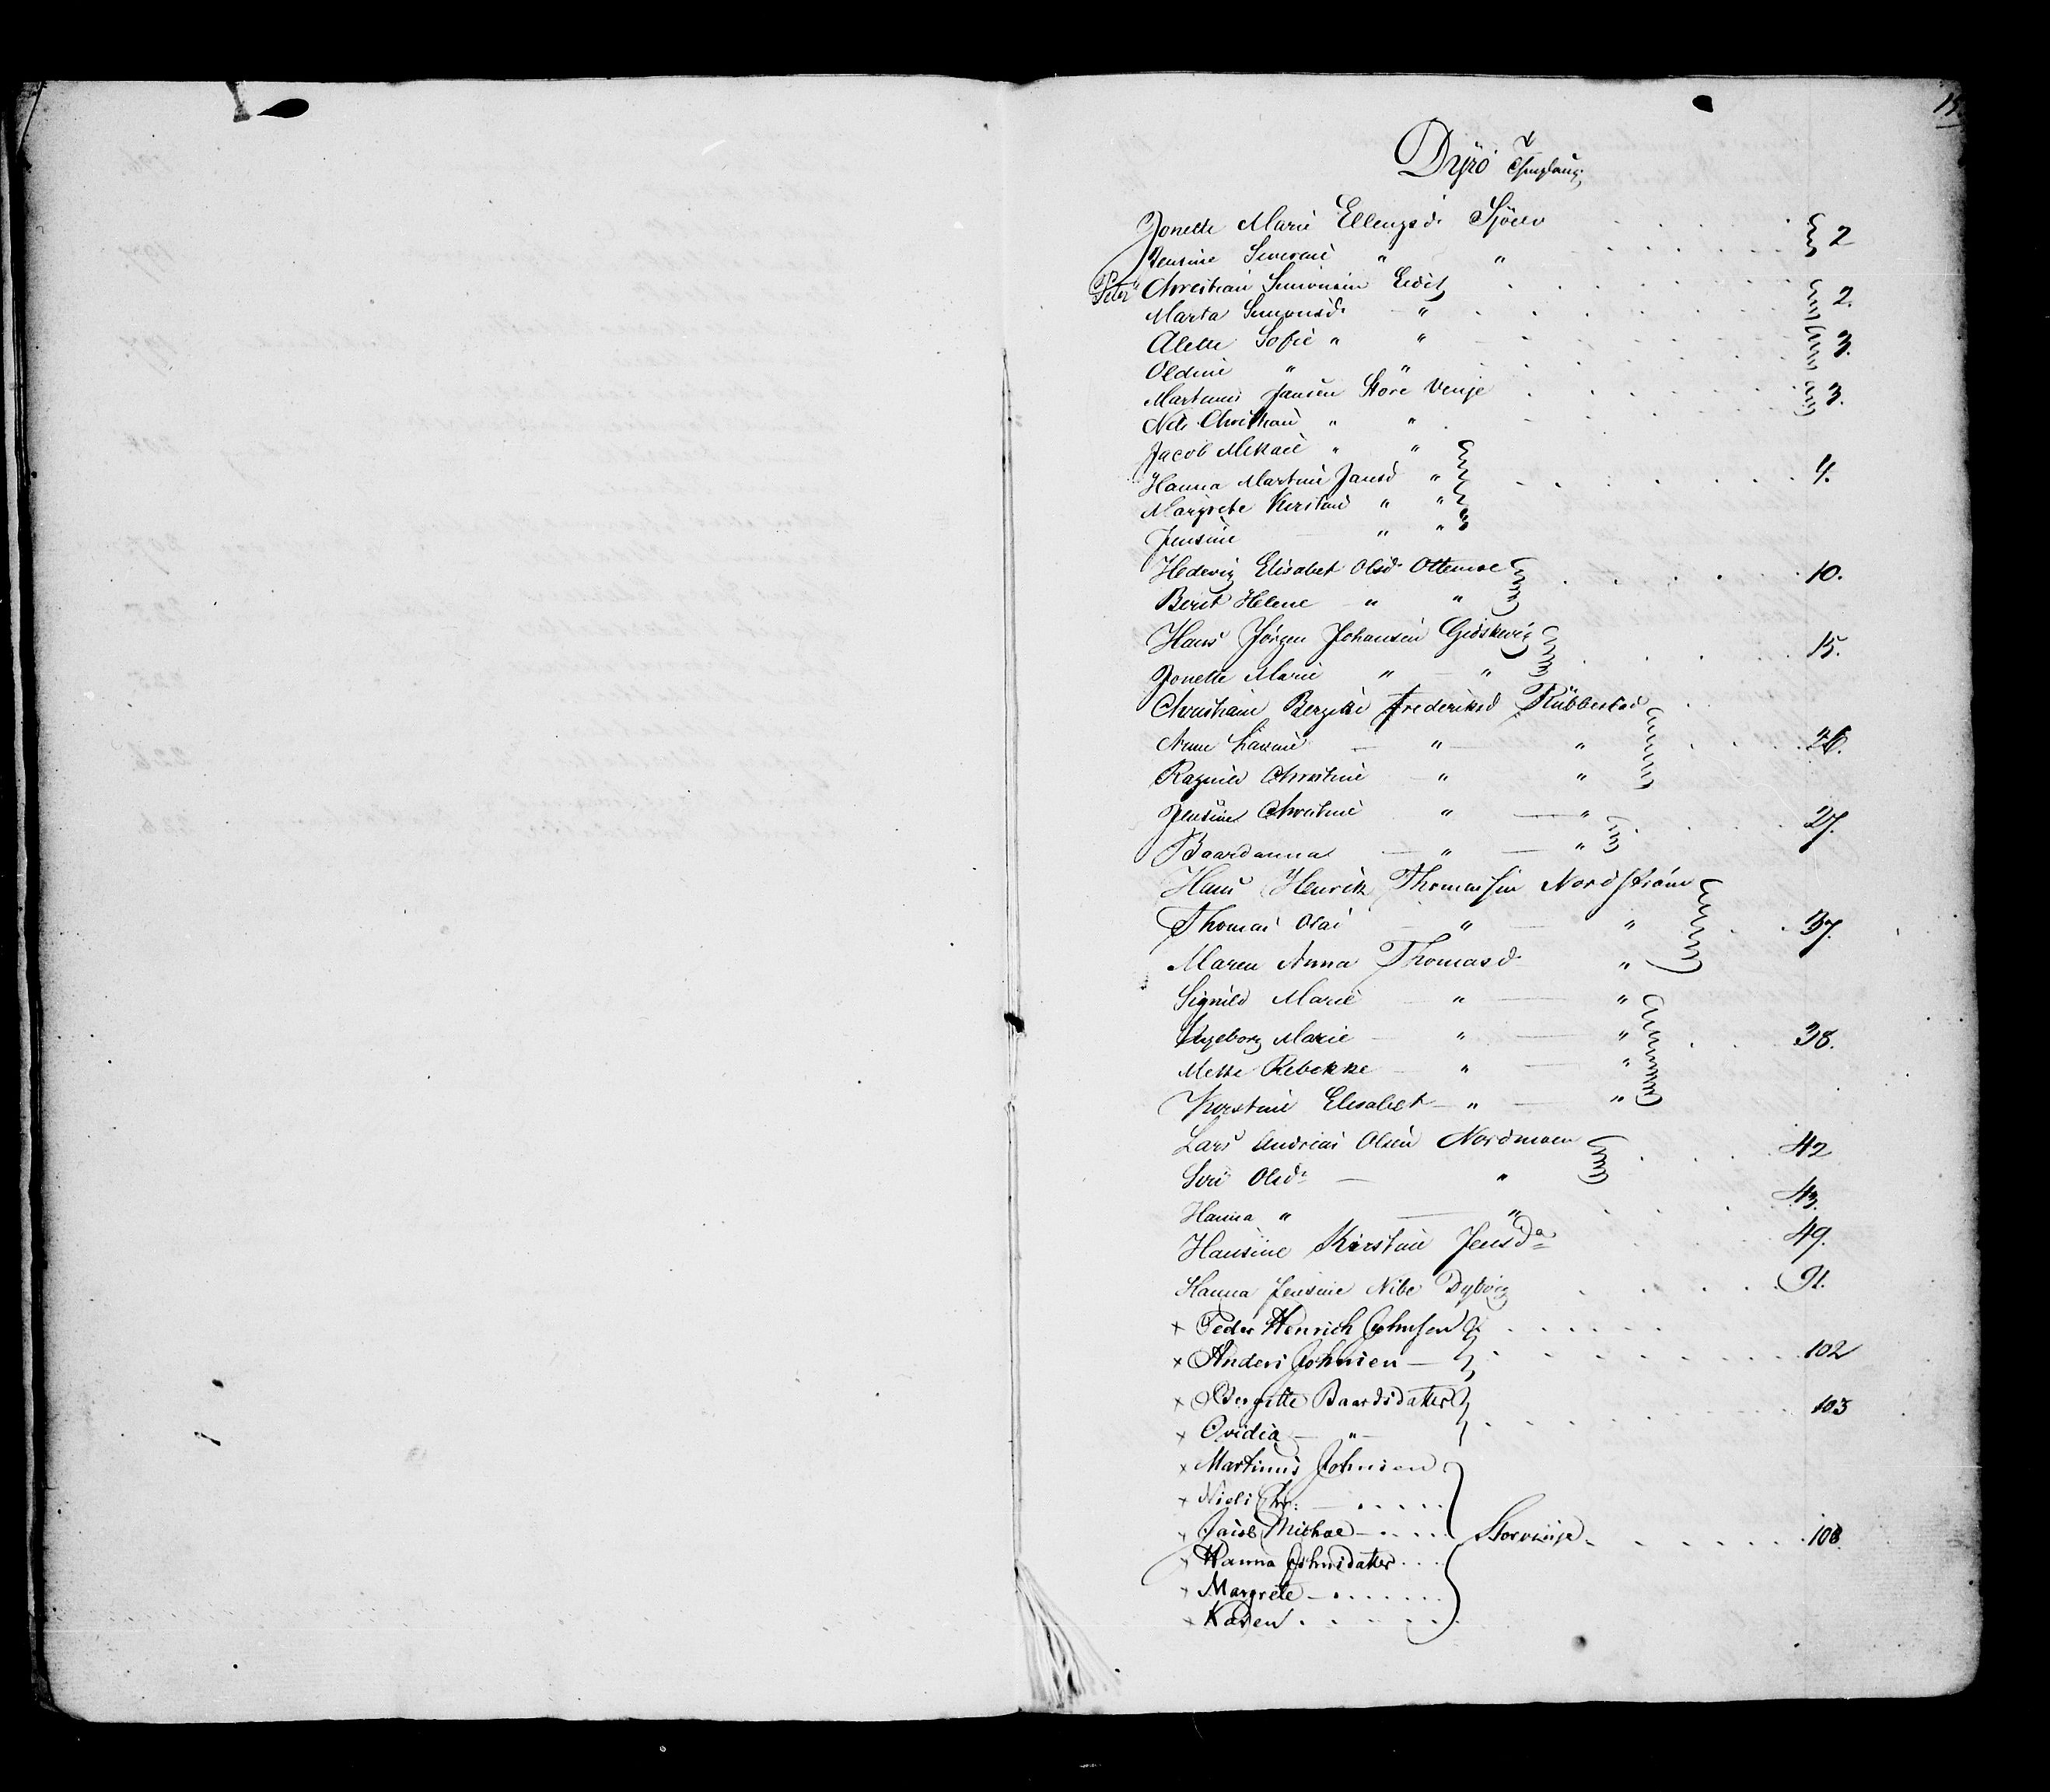 15.
Dyrö
Jonette Marie Ellengsd. Sjöen } 2
Jensine Severine " "
Peter Christian Simonsen Eidet } 2.
Marta Simonsd. "
Alette Sofie " " } 3.
Oldine " "
Martinus Jansen Store Vinje } 3.
Nils Christian " "
Jacob Mikael " "
Hanna Martine Jansd " } 4.
Margrete Kirstine " "
Jensine " "
Hedevig Elisabet Olsd. Ottemoe } 10.
Berit Helene " "
Hans Jörgen Johansen Gidskevig } 15.
Jonette Marie " "
Christiane Bergitte Frederiksd Kübbestad
Anne Lavine " " } 26.
Ragnild Christine " "
Jensine Christine " " } 27.
Baardanna " "
Hans Henrik Thomassen Nordström
Thomas Olai " " } 37.
Maren Anna Thomasd "
Signild Marie " "
Ingeborg Marie " " } 38.
Mette Rebekke " "
Kirstine Elisabet " "
Lars Andreas Olsen Nordmoen } 42
Siri Olsd. "
Hanna " " 43.
Hansine Kirstine Jensda 49.
Hanna Jensine Nibe Dybvig 91.
x Peder Henrich Johnsen }
x Anders Johnsen } 102
x Bergitte Baardsdatter } 103
x Ovidia "
x Martinus Johnsen
x Niels Chr:
x Jacob Michael } Storvinje 108
x Hanna Johnsdatter
x Margrete
x Karen